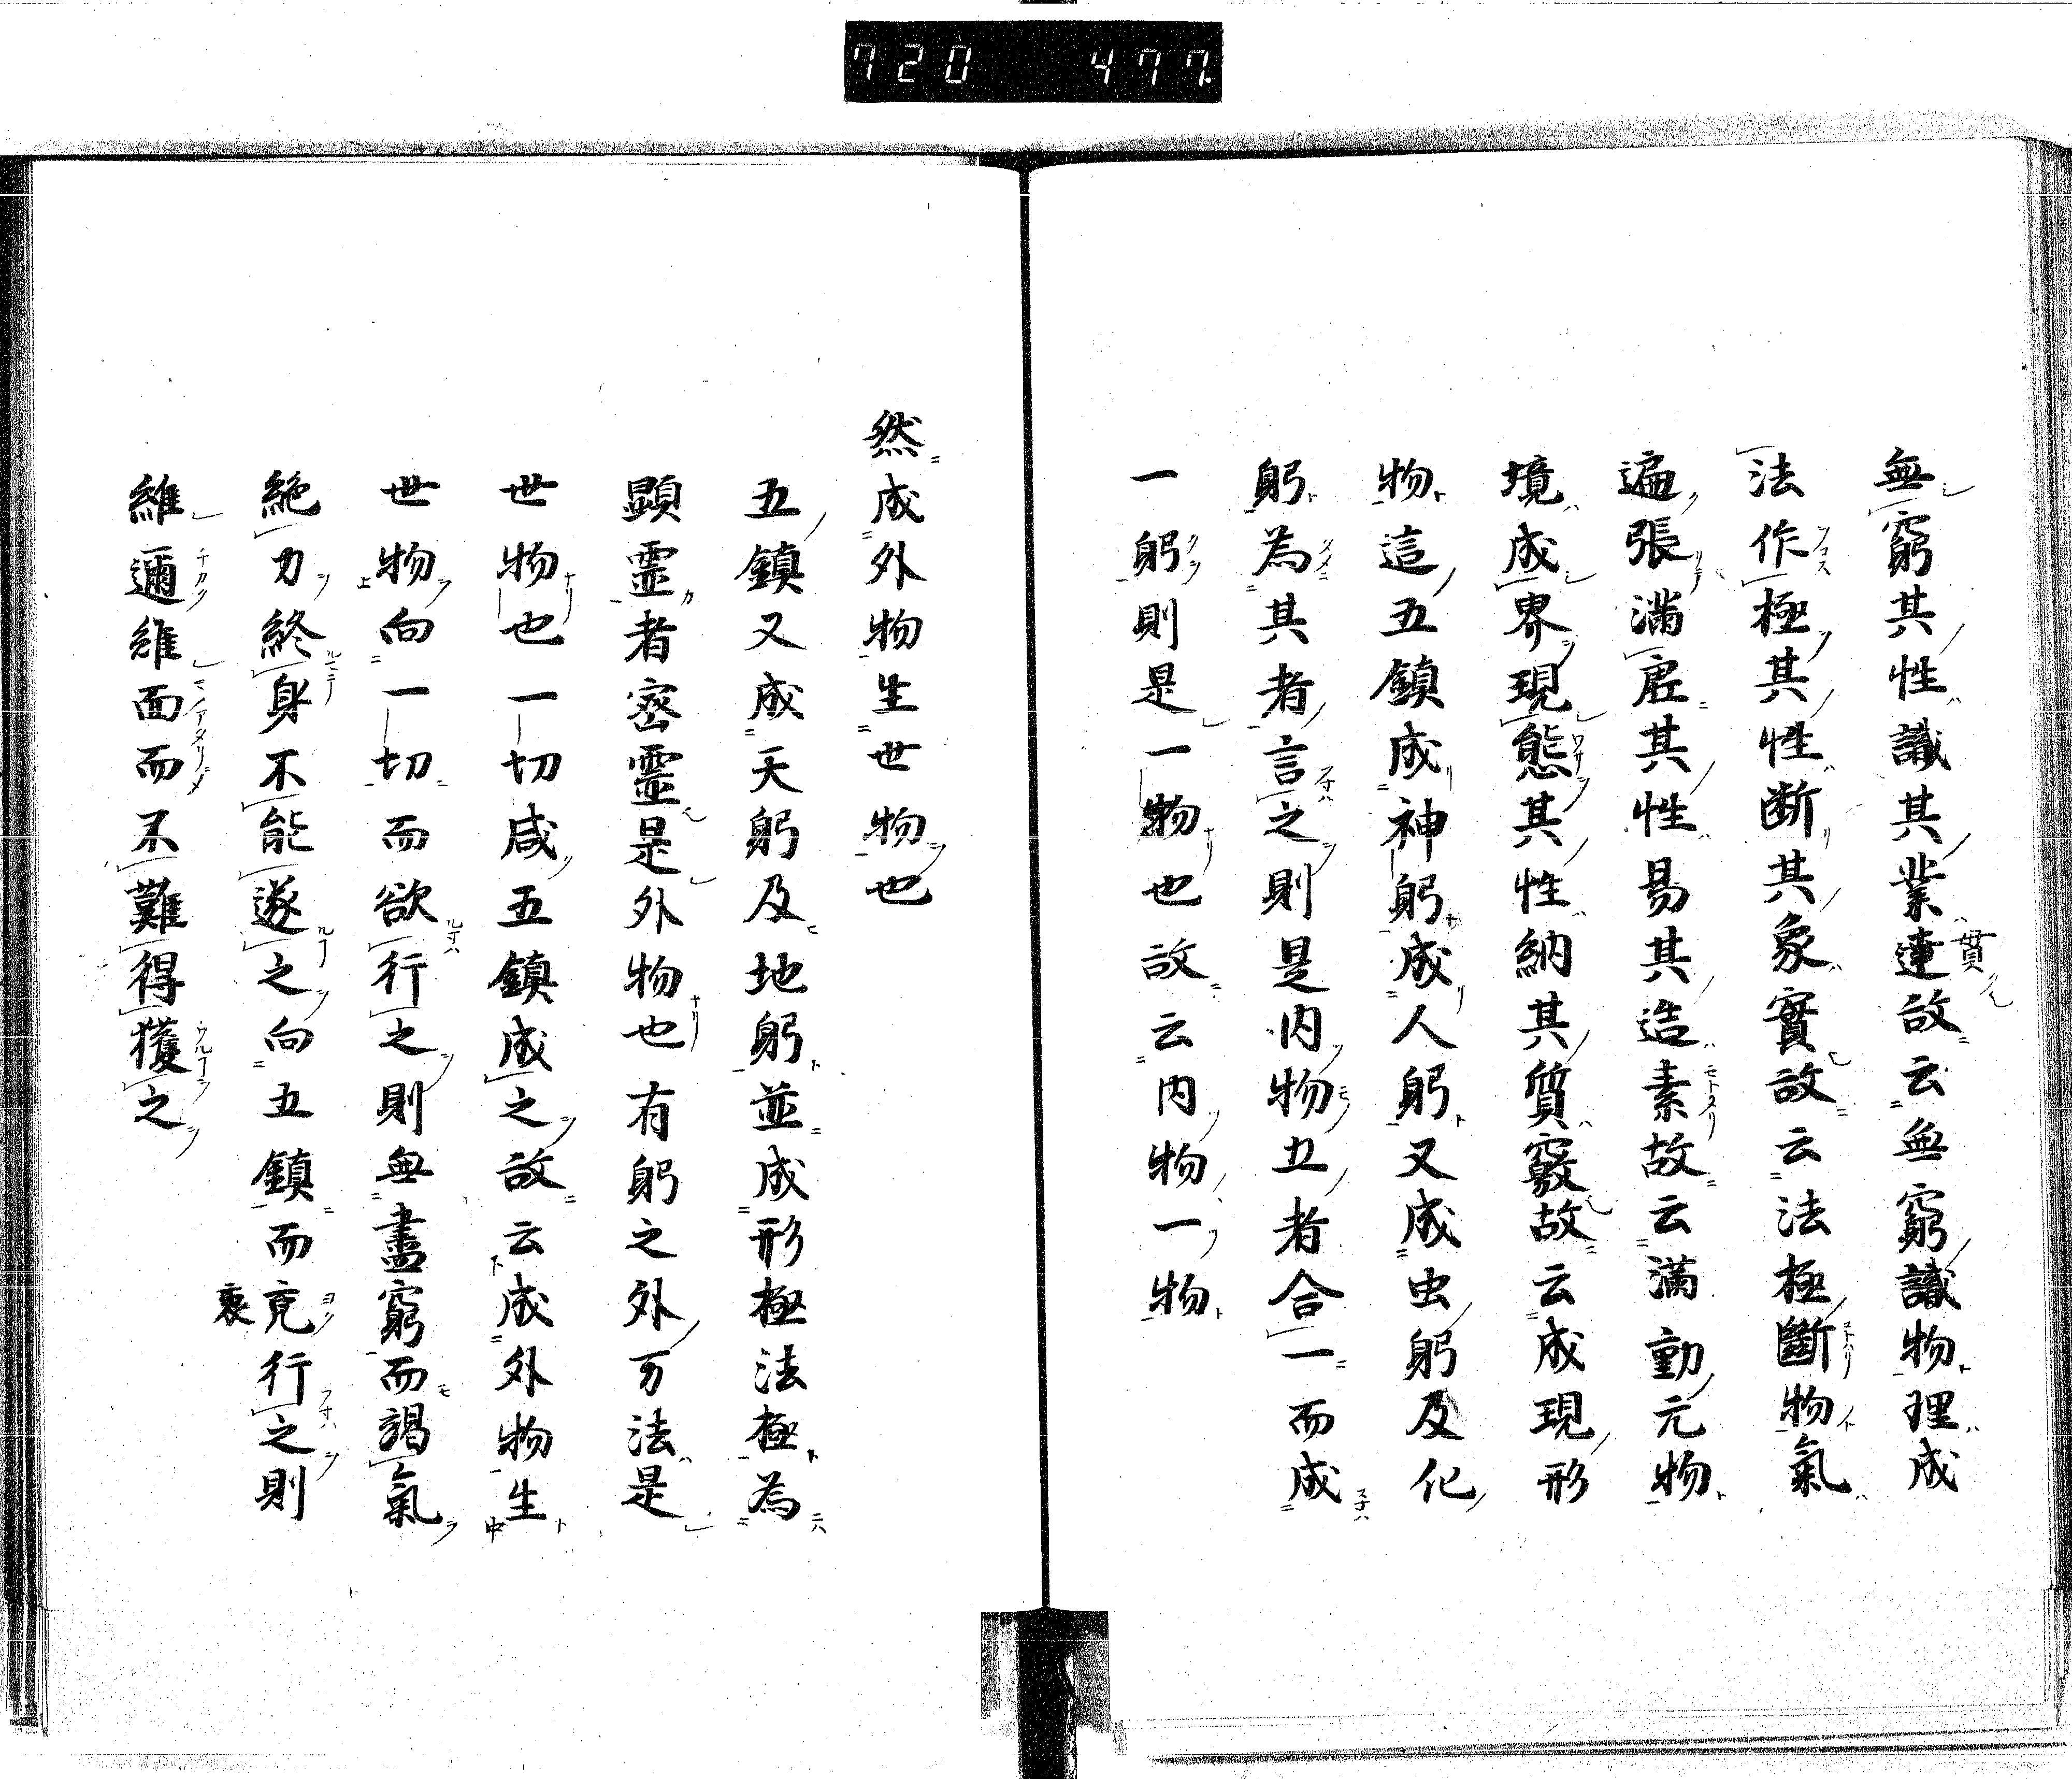 720 477.
無窮其性識其業連故云無窮識物理成
貫
法作極其性断其象實故云法極斷物氣
遍張満虚其性易其造素故云満動元物
境成界現態其性納其質竅故云成現形
物這五鎮成神躬成人躬又成虫躬及化
躬為其者言之則是内物五者合一而成
一躬則是一物也故云内物一物
然成外物生世物也
五鎮又成天躬及地躬並成形極法極為
顕霊者密霊是外物也有躬之外万法是
世物也一切咸五鎮成之故云成外物生
世物向一切而欲行之則無盡窮而謁氣
絶力終身不能遂之向五鎮而克行之則
裹
維邇維面而不難得獲之